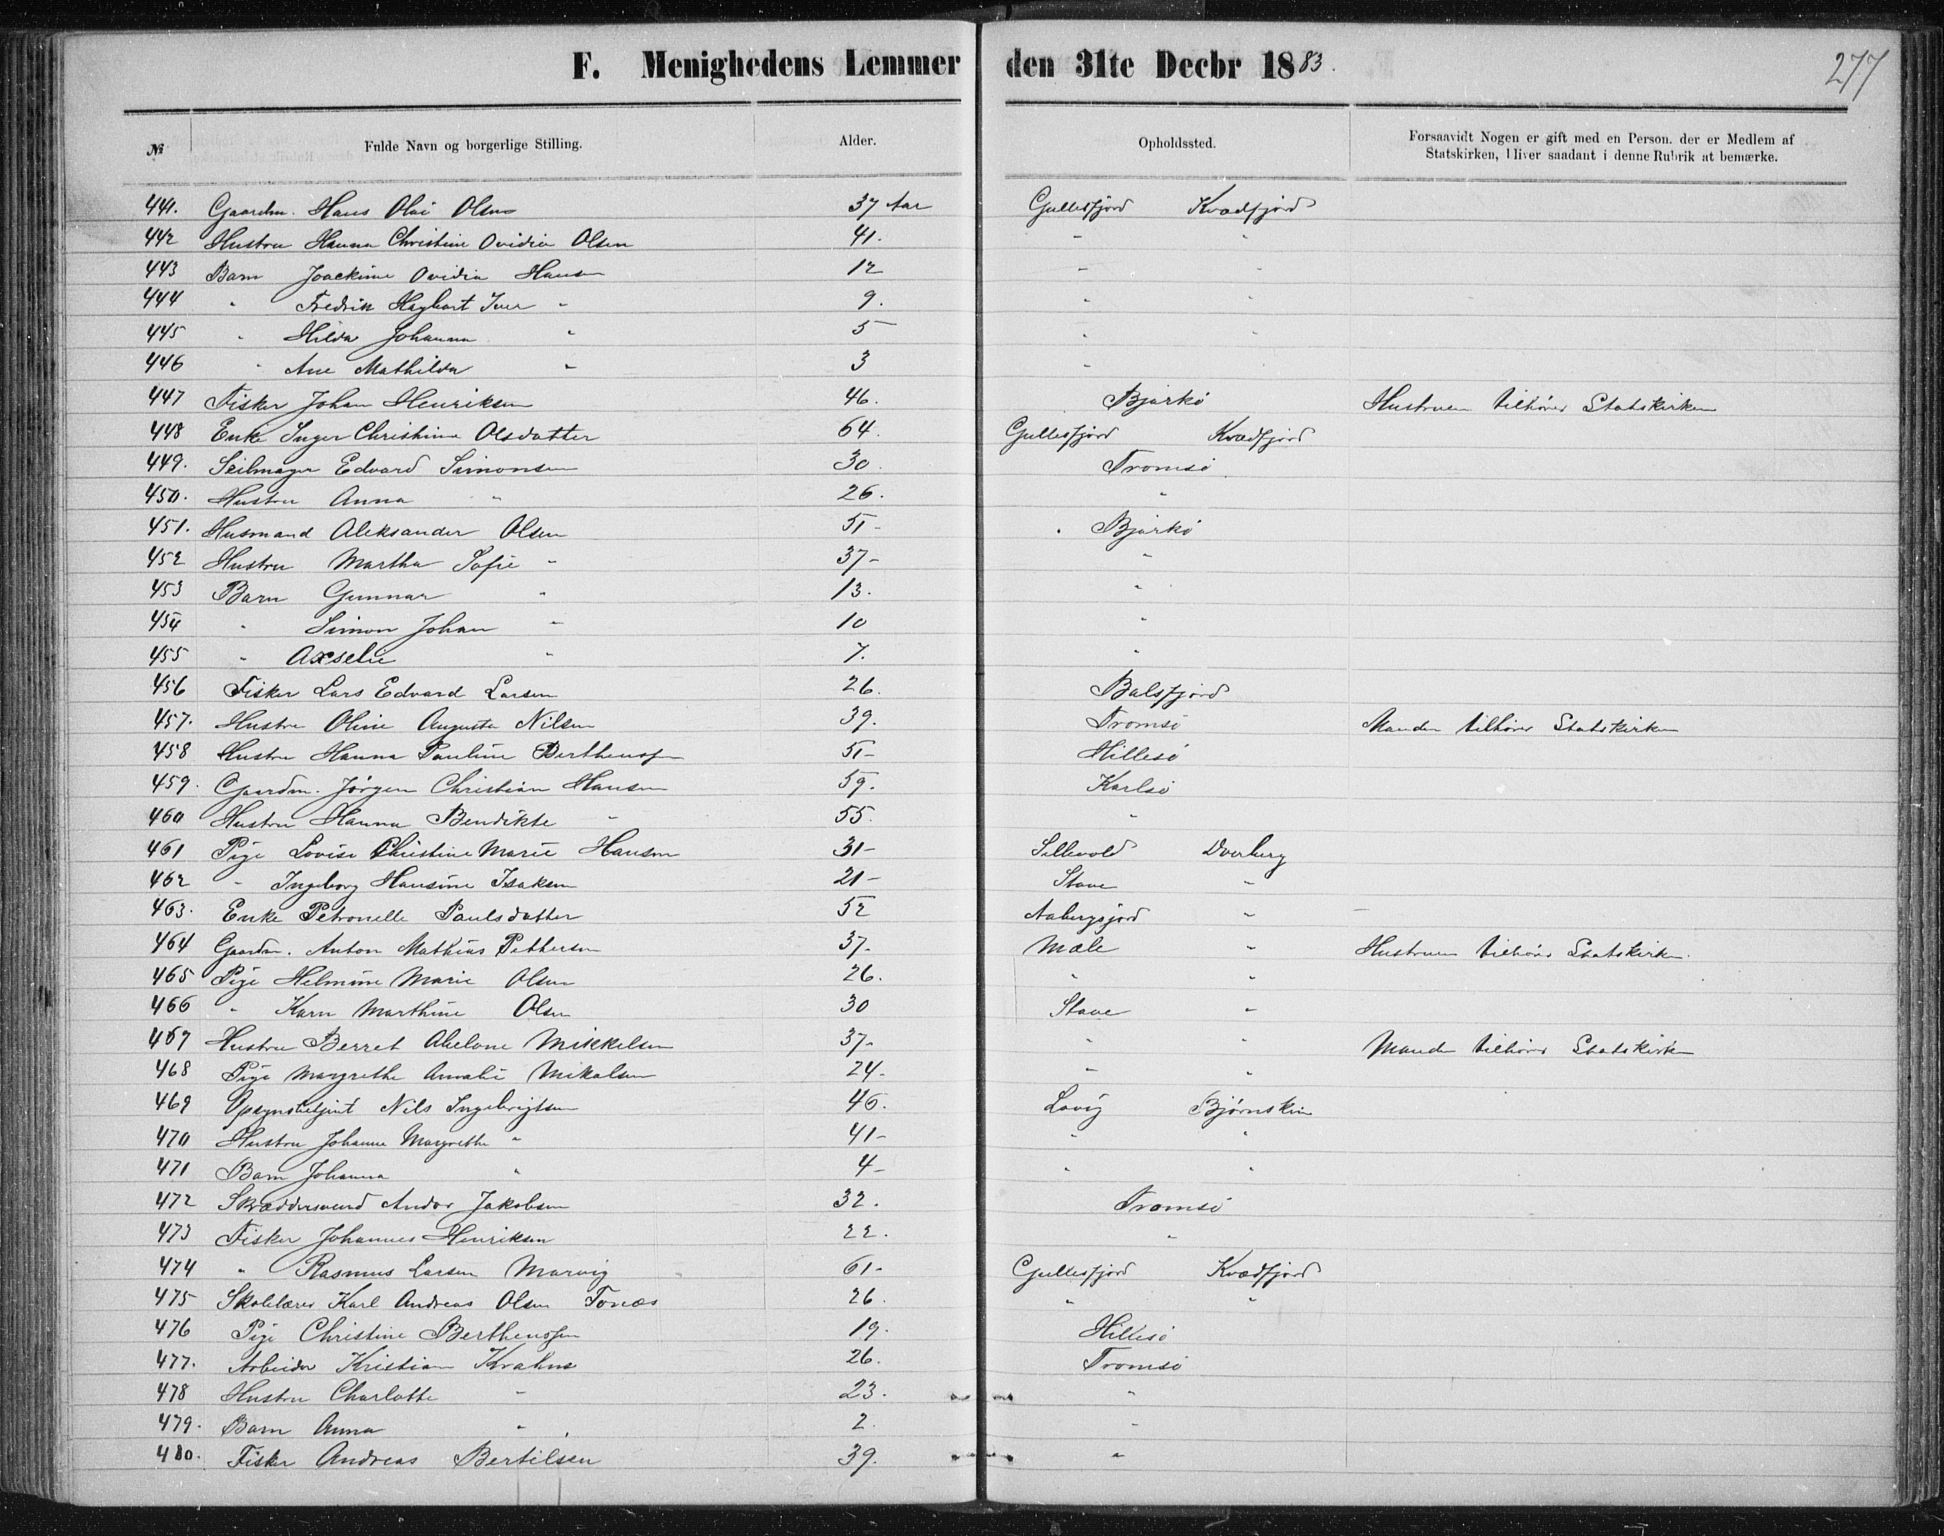 F. Menighedens Lemmer den 31te Decbr 1883.
277
№ Fulde Navn og borgerlige Stilling. Alder. Opholdssted. Forsaavidt Nogen er gift med en Person, der er Medlem af
Statskirken, bliver saadant i denne Rubrik at bemærke.
441. Gaardm. Hans Olai Olsen 37 Aar Gullesfjord Kvædfjord
442 Hustru Hanna Christine Ovidia Olsen 41. " "
443 Barn Joackime Ovidia Hansen 12 " "
444 " Fredrik Hagbart Iver " 9. " "
445 " Hilda Johanna " 5 " "
446 " Ane Mathilda " 3 "
447 Fisker Johan Henriksen 46. Bjarkö Hustruen tilhører Statskirken
448 Enke Inger Christine Olsdatter 64. Gullesfjord Kvædfjord
449. Seilmager Edvard Simonsen 30. Tromsö
450. Hustru Anna " 26. "
451. Husmand Aleksander Olsen 51- Bjarkö
452 Hustru Martha Sofie " 37- "
453 Barn Gunnar " 13. "
454 " Simon Johan " 10 "
455 " Axselie " 7. "
456 Fisker Lars Edvard Larsen 26. Balsfjord
457. Hustru Oline Augusta Nilsen 39. Tromsö Manden tilhører Statskirken
458 Hustru Hanna Pauline Berthenssen 51- Hillesö
459. Gaardm. Jørgen Christian Hansen 59. Karlsö
460 Hustru Hanna Bendikte " 55. "
461 Pige Lovise Christine Marie Hansen 31- Dverberg
462 " Ingeborg Hansine Isaksen 21- Stave "
463. Enke Petronelle Paulsdatter 52 Aabergsjord "
464 Gaardm. Anton Mathias Pettersen 37. Mæle " Hustruen tilhører Statskirken.
465 Pige Helmine Marie Olsen 26. " "
466 " Karn Marthine Olsen 30 Stave "
467 Hustru Berret Abelone Mikkelsen 37- " " Manden tilhører Statskirken
468 Pige Margrethe Amalie Mikalsen 24- " "
469 Opsynsbetjent Nils Ingebrigtsen 46. Lovig Bjørnskin
470 Hustru Johanne Margrethe " 41- " "
471 Barn Johanna " 4- " "
472 Skræddersvend Andor Jakobsen 32. Tromsö
473 Fisker Johannes Henriksen 22. "
474 " Rasmus Larsen Marvig 61- Gullesfjord Kvædfjord
475 Skolelærer Karl Andreas Olsen Tonæs 26. " "
476 Pige Christine Berthenssen 19. Hillesö
477. Arbeider Kristian Krahns 26. Tromsö
478 Hustru Charlotte " 23. "
479. Barn Anna " 2. "
480. Fisker Andreas Bertilsen 39. "